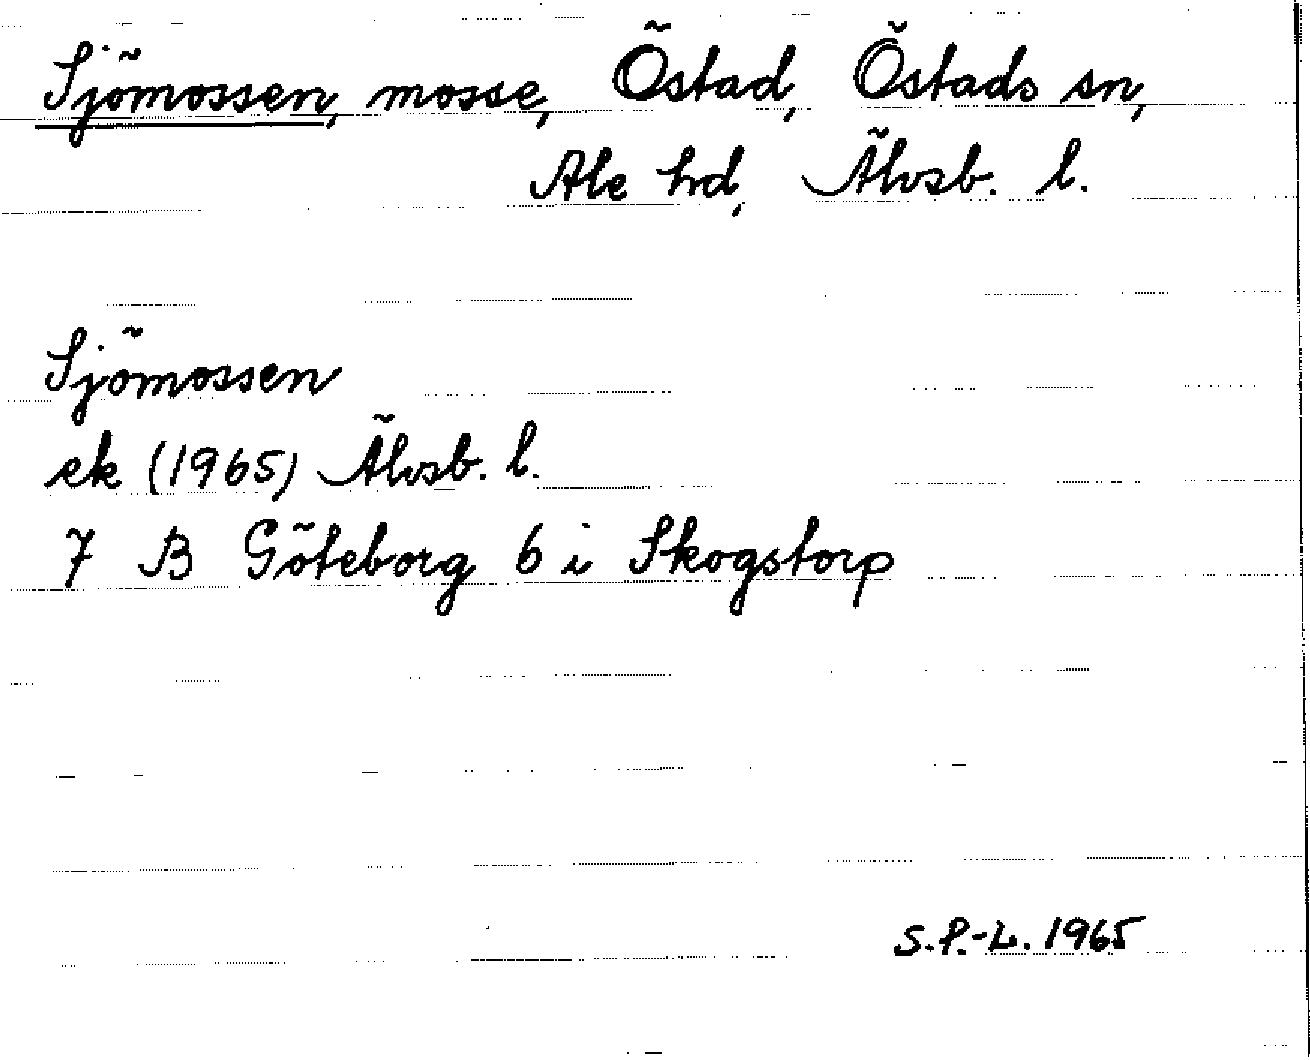 Sjömossen, mosse, Östad, Östads sn,
Ale hd, Älvsb. l.
Sjömossen
ek (1965) Älvsb. l.
7 B Göteborg 6 i Skogstorp
S.P.-L. 1965